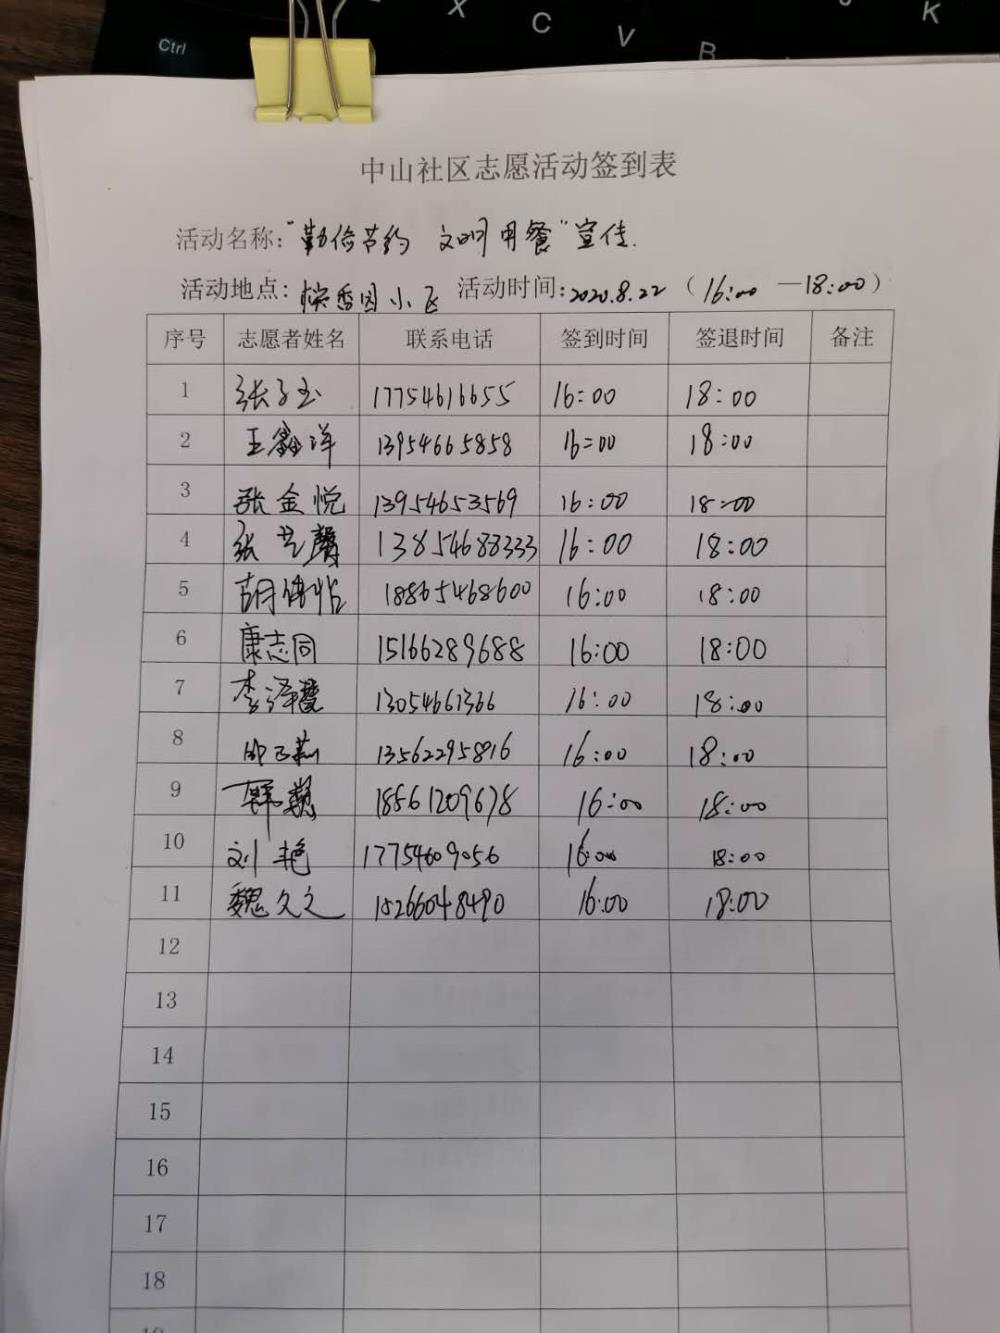 Ctrl X C V B K
中山社区志愿活动签到表
活动名称:“勤俭节约 文明用餐”宣传.
活动地点: 小飞 活动时间:2020.8.22 (16:00 —18:00)
序号 志愿者姓名 联系电话 签到时间 签退时间 备注
1 张子玉 17754616655 16:00 18:00
2 王鑫洋 13954665858 16:00 18:00
3 张金悦 13954653569 16:00 18:00
4 张艺馨 13854688333 16:00 18:00
5 胡倩怡 18865468600 16:00 18:00
6 康志同 15166289688 16:00 18:00
7 李泽 13054661366 16:00 18:00
8 13562295816 16:00 18:00
9 18561209678 16:00 18:00
10 刘艳 17754609056 16:00 18:00
11 魏久之 15266048490 16:00 18:00
12
13
14
15
16
17
18
19